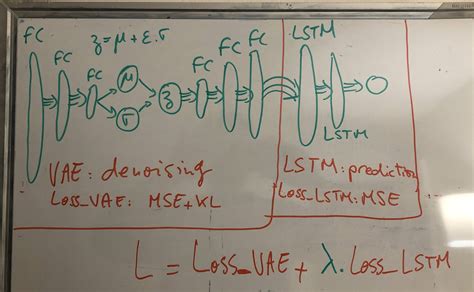 FC
FC
FC
z = μ + ε.σ
μ
σ
z
FC
FC
FC
LSTM
LSTM
VAE: denoising
Loss_VAE: MSE+KL
LSTM: prediction
Loss_LSTM: MSE
L = Loss_VAE + λ. Loss_LSTM